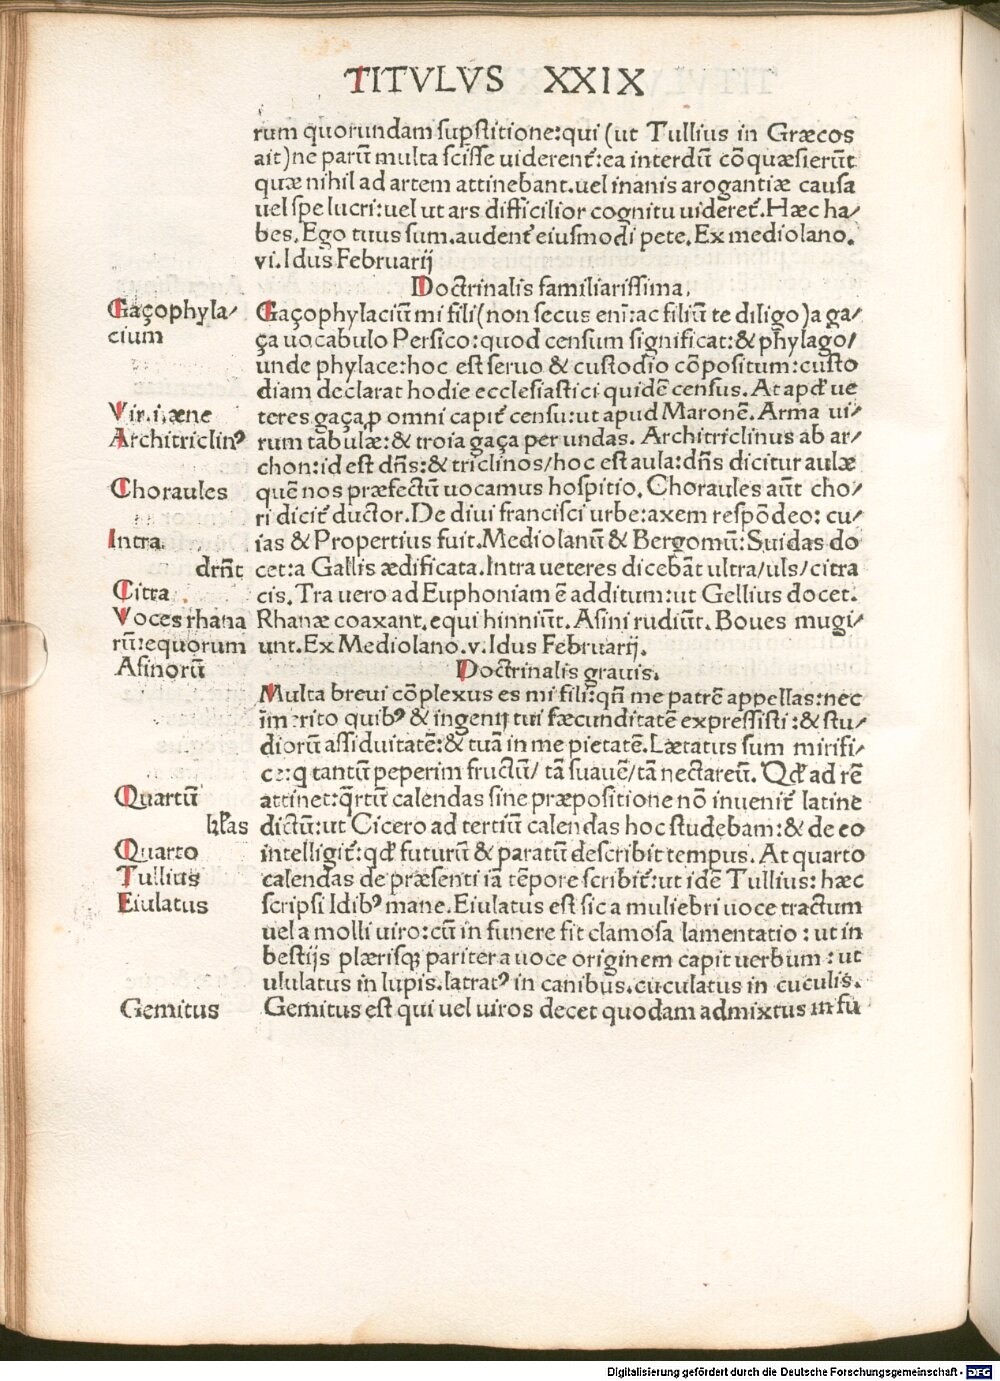 TITVLVS XXIX
rum quorundam supstitione:qui (ut Tullius in Græcos
ait)ne parū multa scisse uiderent᷑:ea interdū cōquæsierūt
quæ nihil ad artem attinebant.uel inanis arogantiæ causa
uel spe lucri:uel ut ars difficilior cognitu uideret᷑.Hæc ha/
bes.Ego tuus sum.audent᷑ eiusmodi pete.Ex mediolano.
vi.Idus Februarij
Doctrinalis familiarissima.
Gaçophyla/
cium
Gaçophylaciū mi fili(non secus eni:ac filiū te diligo)a ga/
ça uocabulo Persico:quod censum significat:& phylago/
unde phylace:hoc est seruo & custodio cōpositum:custo
diam declarat hodie ecclesiastici quidē census. At apd' ue
teres gaça,p omni capit᷑ censu:ut apud Maronē.Arma ui/
Architriclinꝰ
rum tabulæ:& troia gaça per undas. Architriclinus ab ar/
chon:id est dn̄s:& triclinos/hoc est aula:dn̄s dicitur aulæ
Choraules
quē nos præfectū uocamus hospitio.Choraules aūt cho/
ri dicit᷑ ductor.De diui francisci urbe:axem respōdeo: cu/
Intra
ias & Propertius fuit.Mediolanū & Bergomū:Suidas do
drn̄t
cet:a Gallis ædificata.Intra ueteres dicebāt ultra/uls/citra
Citra
cis.Tra uero ad Euphoniam ē additum:ut Gellius docet.
Voces rhana
Rhanæ coaxant.equi hinniūt.Asini rudiūt.Boues mugi/
rū:equorum
unt.Ex Mediolano.v.Idus Februarij.
Asinorū
Doctrinalis grauis.
Multa breui cōplexus es mi fili:qn̄ me patrē appellas:nec
rito quibꝰ & ingenij tui fæcunditatē expressisti:& stu/
diorū assiduitatē:& tuā in me pietatē.Lætatus sum mirifi/
q tantū peperim fructū/ tā suauē/tā nectareū. Qd' ad rē
Quartū
attinet:q̄rtū calendas sine præpositione nō inuenit᷑ latine
kl̄as
dictū:ut Cicero ad tertiū calendas hoc studebam:& de eo
Quarto
intelligit᷑:qd' futurū & paratū describit tempus. At quarto
Tullius
calendas de præsenti iā tēpore scribit᷑:ut idē Tullius: hæc
Eiulatus
scripsi Idibꝰ mane.Eiulatus est sic a muliebri uoce tractum
uel a molli uiro:cū in funere fit clamosa lamentatio : ut in
bestijs plærisqꝫ pariter a uoce originem capit uerbum : ut
ululatus in lupis.latratꝰ in canibus.cuculatus in cuculis.
Gemitus
Gemitus est qui uel uiros decet quodam admixtus in fu
Digitalisierung gefördert durch die Deutsche Forschungsgemeinschaft - DFG